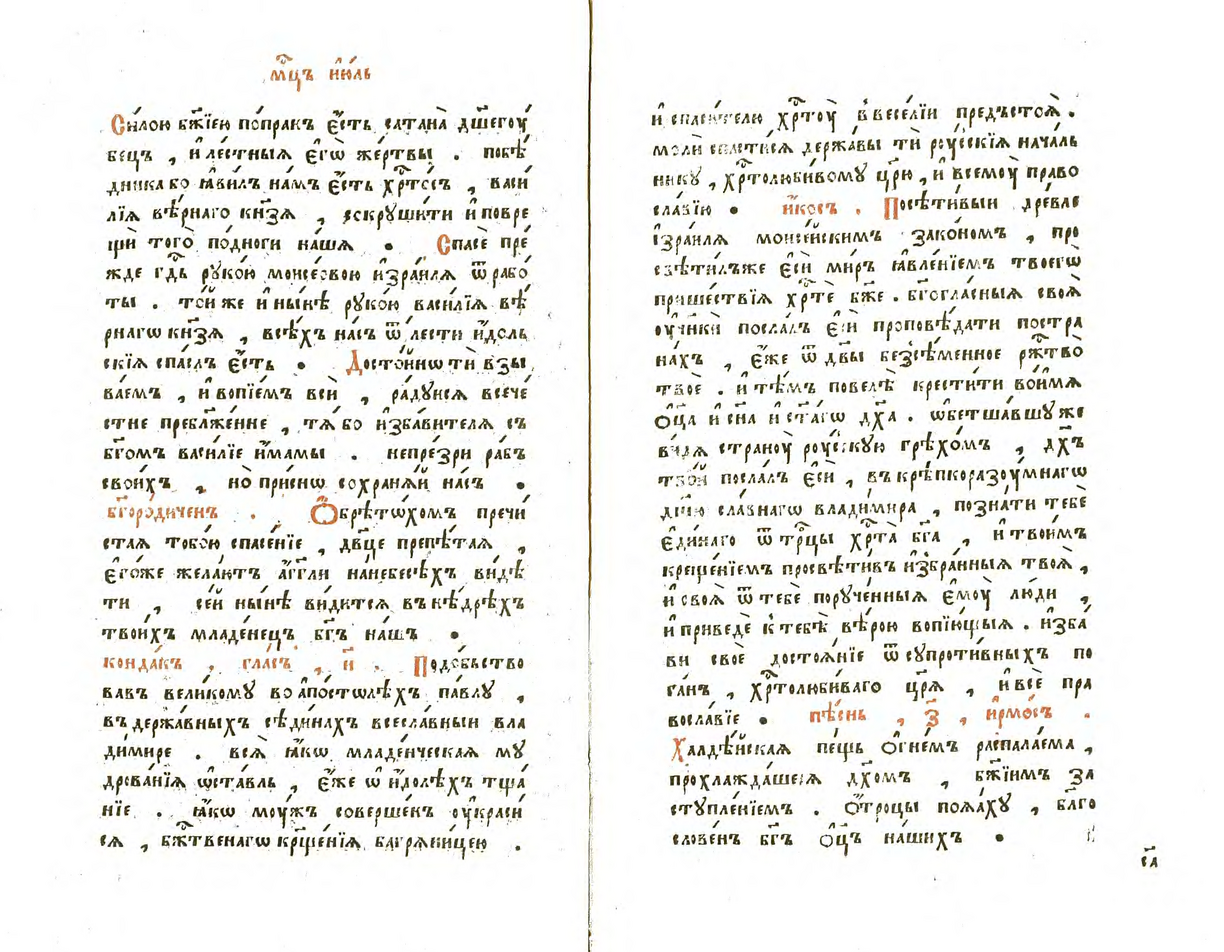 мⷭ҇цъ і҆ю́ль
Си́лою бж҃їею попра́къ є҆́сть сатана̀ дш҃егоу
бецъ , и҆ ле́стныѧ є҆гѡ̀ же́ртвы . побѣ́
дника бо ꙗ҆ви́лъ на́мъ є҆́сть хрⷭ҇то́съ , васи́
лїѧ вѣ́рнаго кн҃зѧ , сокруши́ти и҆ повре
щѝ того̀ подноги на́шѧ . Спасе́ пре́
жде гдⷭ҇ь руко́ю моисе́ѡвою и҆зра́илѧ ѿ рабо́
ты . то́йже и҆ ны́нѣ руко́ю васи́лїѧ вѣ́
рнагѡ кн҃зѧ , всѣ́хъ на́съ ѿ ле́сти и҆́доль
скїѧ спа́слъ є҆́сть . Досто́йнѡ тѝ взы
ва́емъ , и҆ вопїе́мъ всѝ , ра́дуисѧ всече́
стне пребл҃же́нне , тѧ́ бо и҆зба́вителѧ съ
бг҃омъ васи́лїе и҆́мамы . непре́зри ра́бъ
свои́хъ , но̀ при́снѡ сохранѧ́й на́съ .
бг҃оро́диченъ . Ѡ҆брѣто́хомъ пречи́
стаѧ тобо́ю спасе́нїе , дв҃це препѣ́таѧ ,
є҆го́же жела́ютъ а҆́гг҃ли на небесѣ́хъ ви́дѣ
ти , се́й ны́нѣ ви́дитсѧ въ нѣ́дрѣхъ
твои́хъ младе́нецъ бг҃ъ на́шъ .
конда́къ , гла́съ , и҃ . Подо́бьство
вавъ вели́кому во а҆по́столѣхъ па́влу ,
въ держа́вныхъ сѣди́нахъ всесла́вныи вла
ди́мире . всѧ̀ ꙗ҆́кѡ младе́нческаѧ му
дрова́нїѧ ѡ҆ста́вль , є҆́же ѡ҆ и҆́долѣхъ тща́
нїе . ꙗ҆́кѡ моу́жъ соверше́нъ оу҆краси́
сѧ , бжⷭ҇твенагѡ крщ҃е́нїѧ багрѧни́цею .
и҆ спаси́телю хрⷭ҇тоу̀ в весе́лїи предъстоѧ̀ .
молѝ спасти́сѧ держа́вы тѝ роу́сскїѧ нача́ль
нику , хрⷭ҇толюби́вому цр҃ю , и҆ всемоу̀ право
сла́вїю . и҆́косъ . Посѣти́выи дре́вле
і҆зра́илѧ моисе́йскимъ зако́номъ , про
свѣти́лъже є҆сѝ ми́ръ ꙗ҆вле́нїемъ твоегѡ̀
прише́ствїѧ хрⷭ҇тѐ бж҃е . бг҃огла́сныѧ своѧ̀
оу҆чн҃кѝ посла́лъ є҆сѝ пропове́дати по стра
на́хъ , є҆́же ѿ дв҃ы безсѣ́менное рожⷭ҇тво̀
твоѐ . и҆ тѣ́мъ повелѣ̀ крести́ти во и҆́мѧ
ѻ҆ц҃а и҆ сн҃а и҆ ст҃а́гѡ дх҃а . ѡ҆бетша́вшу же
ви́дѧ страноу̀ роу́сскую грѣхо́мъ , дх҃ъ
тво́й посла́лъ є҆сѝ , въ крѣ́пкоразоу́мнагѡ
дш҃ю сла́внагѡ влади́мира , позна́ти тебѐ
є҆ди́наго ѿ трⷪ҇цы хрⷭ҇та̀ бг҃а , и҆ твои́мъ
креще́нїемъ просвѣти́въ и҆збра́нныѧ твоѧ̀ ,
и҆ своѧ̀ ѿ тебѐ пору́ченныѧ є҆моу̀ лю́ди ,
и҆ приведѐ к тебѣ̀ вѣ́рою вопїю́щыѧ . и҆зба́
ви своѐ достоѧ́нїе ѿ супроти́вныхъ по
га́нъ , хрⷭ҇толюби́ваго цр҃ѧ̀ , и҆ всѐ пра
восла́вїе . пѣ́снь , з҃ , і҆рмо́съ .
Халдѣ́йскаѧ пе́щь ѻ҆гне́мъ распала́ема ,
прохлажда́шесѧ дх҃омъ , бж҃їимъ за
ступле́нїемъ . ѻ҆́троцы поѧ́ху , благо
слове́нъ бг҃ъ ѻ҆ц҃ъ на́шихъ .
са҃